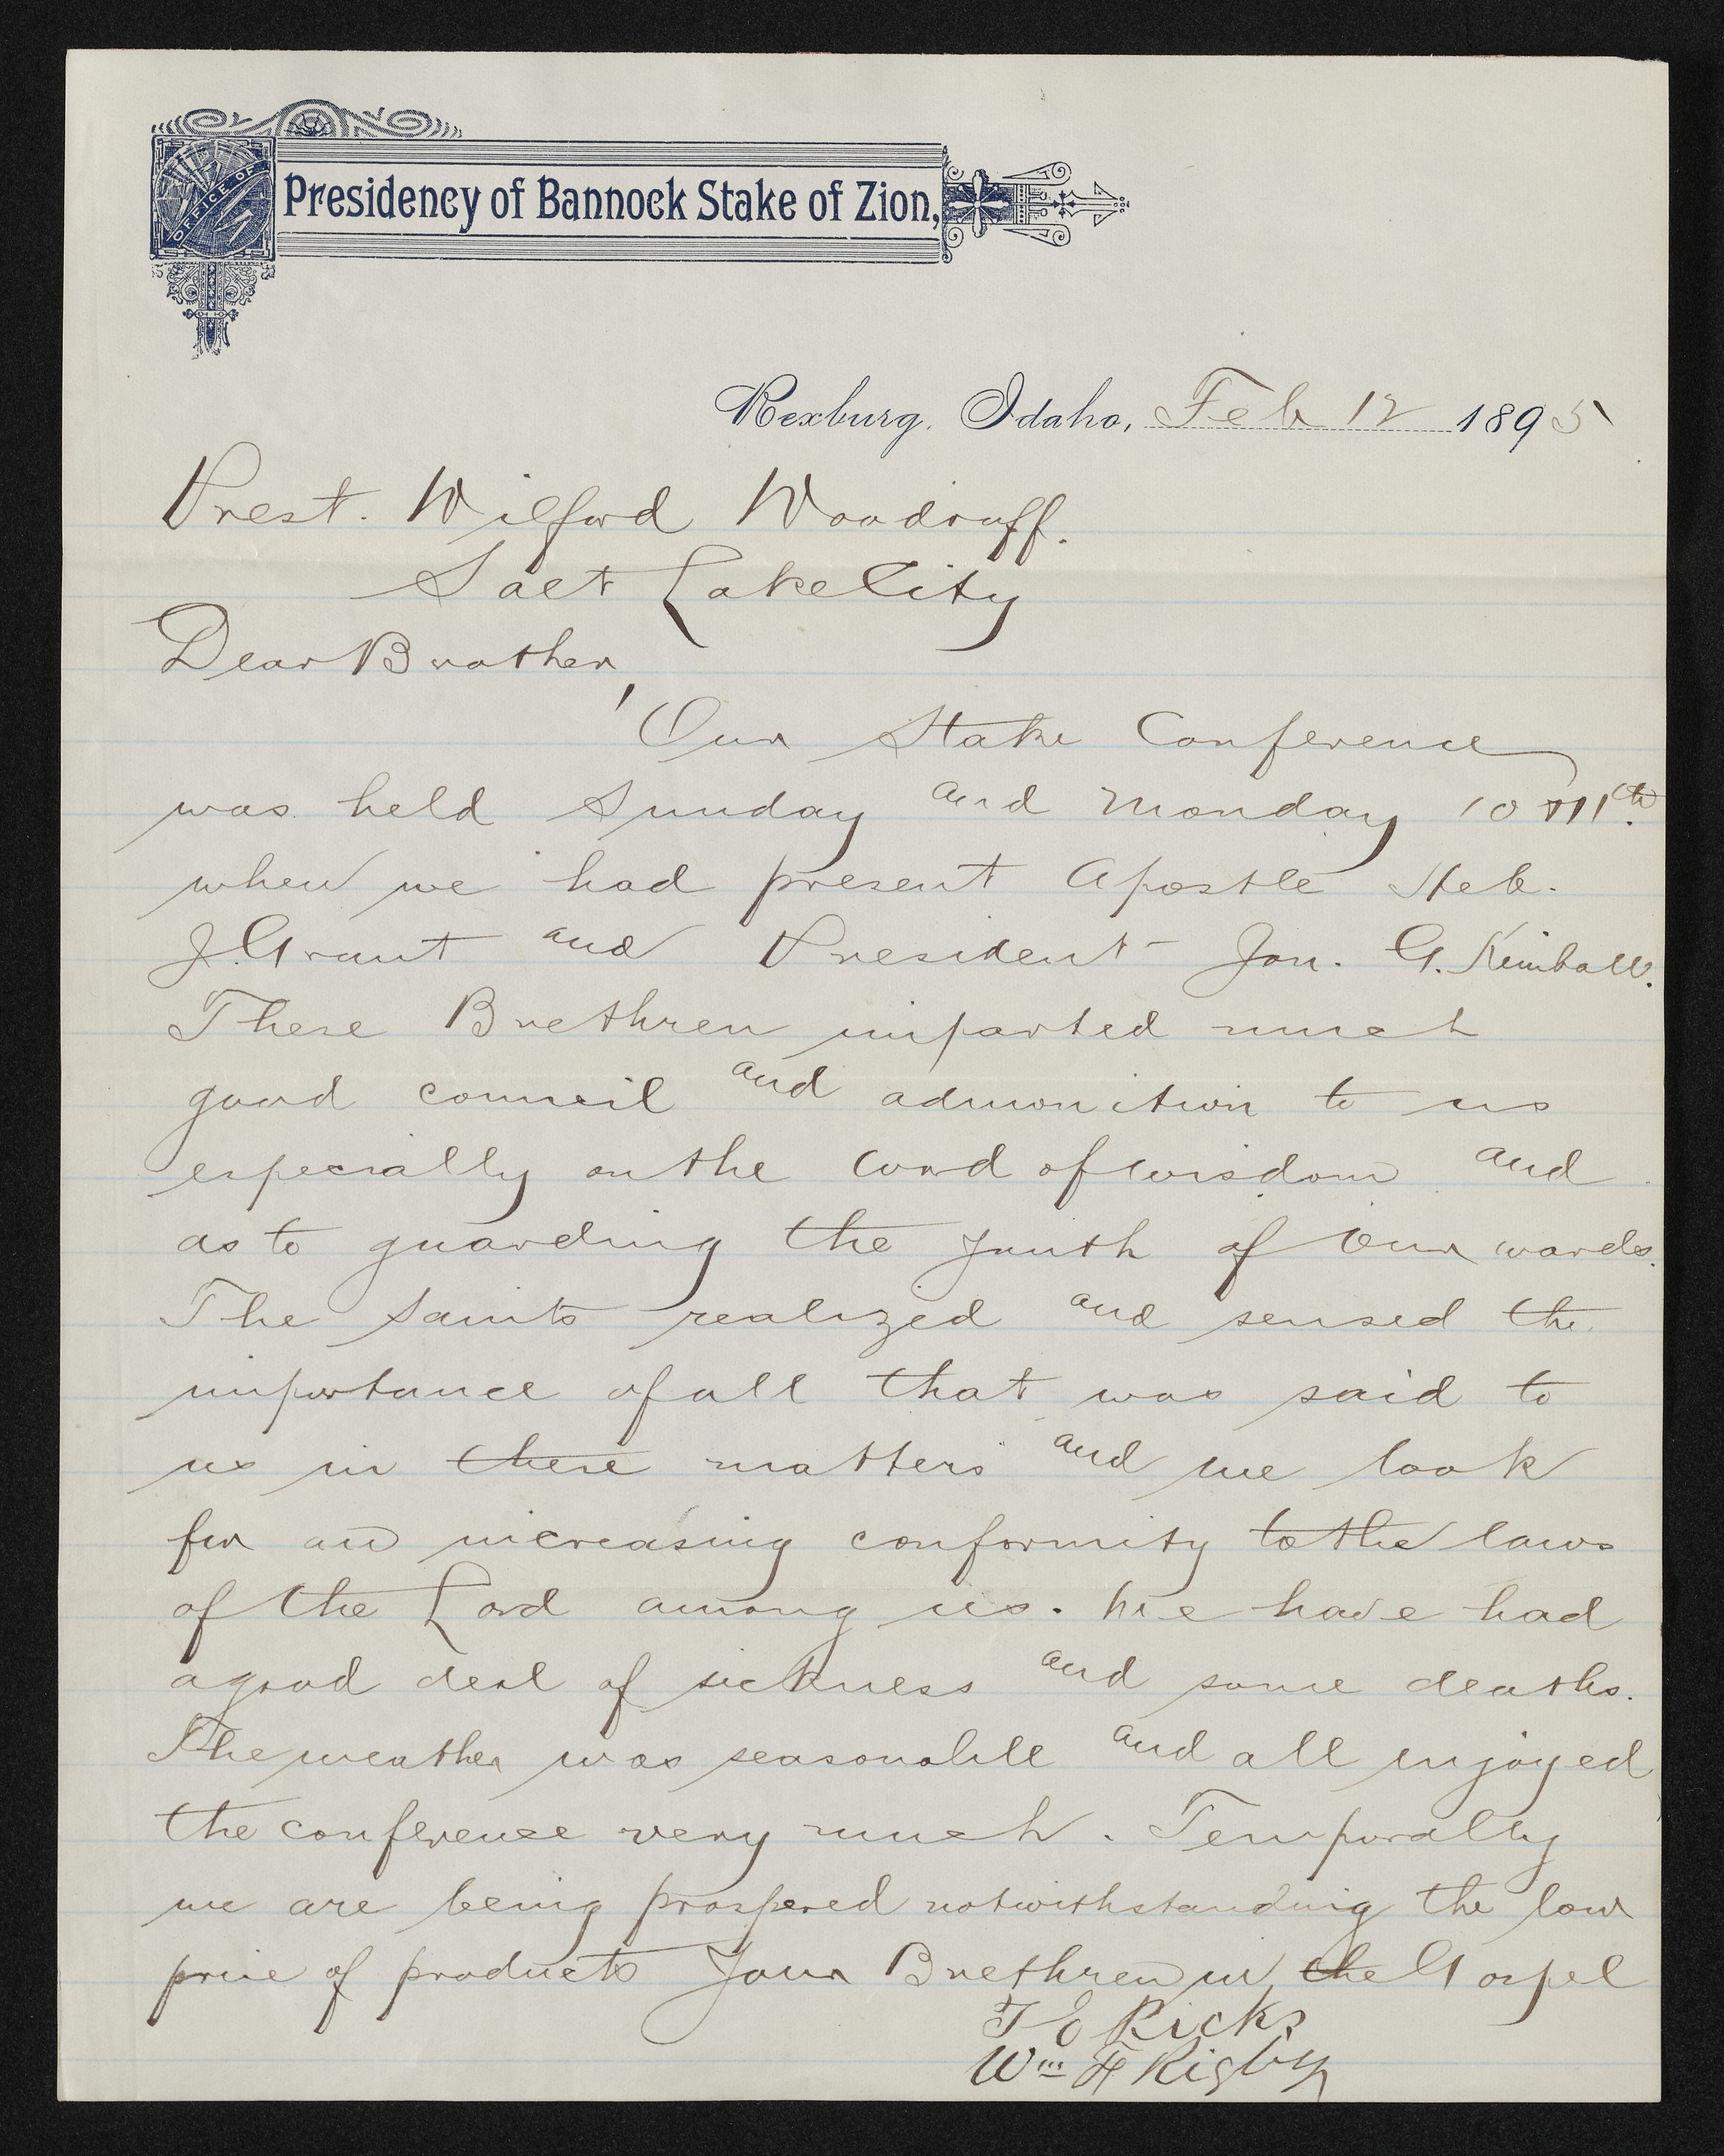 OFFICE OF
Presidency of Bannock Stake of Zion,
Rexburg, Idaho, Feb 12 1895
Prest. Wilford Woodruff.
Salt Lake City
Dear Brother,
Our Stake Conference
was held Sunday and Monday 10 & 11th.
when we had present Apostle Heb.
J. Grant and President Jon. G. Kimball.
These Brethren imparted much
good council and admonition to us
especially on the word of wisdom and
as to guarding the youth of our wards.
The Saints realized and sensed the
importance of all that was said to
us in these matters and we look
for an increasing conformity to the laws
of the Lord among us. We have had
a good deal of sickness and some deaths.
The weather was seasonable and all enjoyed
the conference very much. Temporally
we are being prospered notwithstanding the low
price of products Your Brethren in the Gospel
T E Ricks
Wm F Rigby